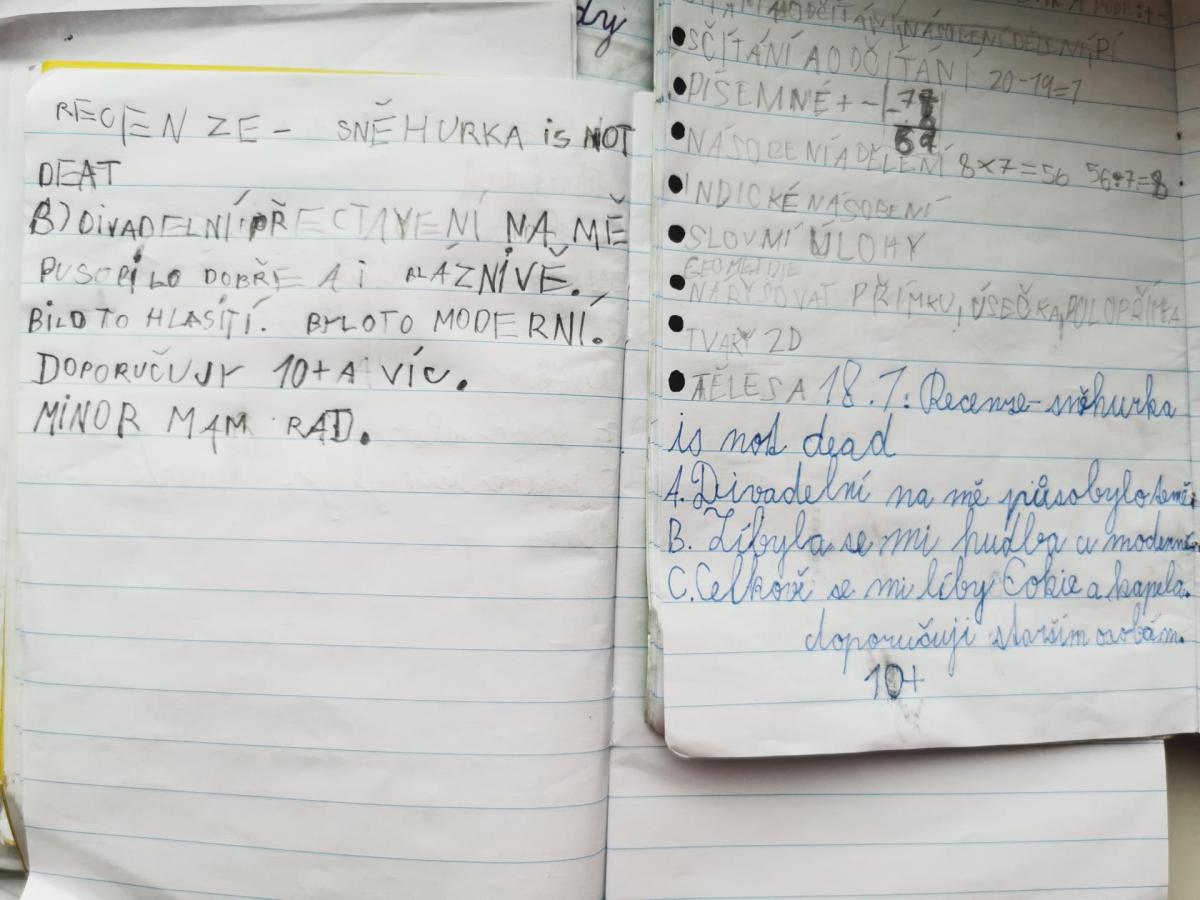 RECENZE - SNĚHURKA is NOT
DEAT
B) DIVADELNÍ PŘECTAVENÍ NA MĚ
PUSOBILO DOBŘE A I BLÁZNIVĚ.
BILO TO HLASITÍ. BYLO TO MODERNÍ.
DOPORUČUJY 10+ A VÍC.
MINOR MAM RAD.
dy
SČÍTÁNÍ A ODČÍTÁNÍ 20-19=1
PÍSEMNÉ + -
NÁSOBENÍ A DĚLENÍ 8×7=56 56÷7=8
INDICKÉ NÁSOBENÍ
SLOVNÍ ÚLOHY
GEOMETRIE
NARÝSOVAT PŘÍMKU, ÚSEČKA, POLOPŘÍMKA
TVARY 2D
TĚLESA 18.1: Recenze-sněhurka
is not dead
A. Divadelní na mě působylo
B. Líbyla se mi hudba a
C. Celkově se mi líby Cokie a kapela.
doporučuji starším osobám.
10+